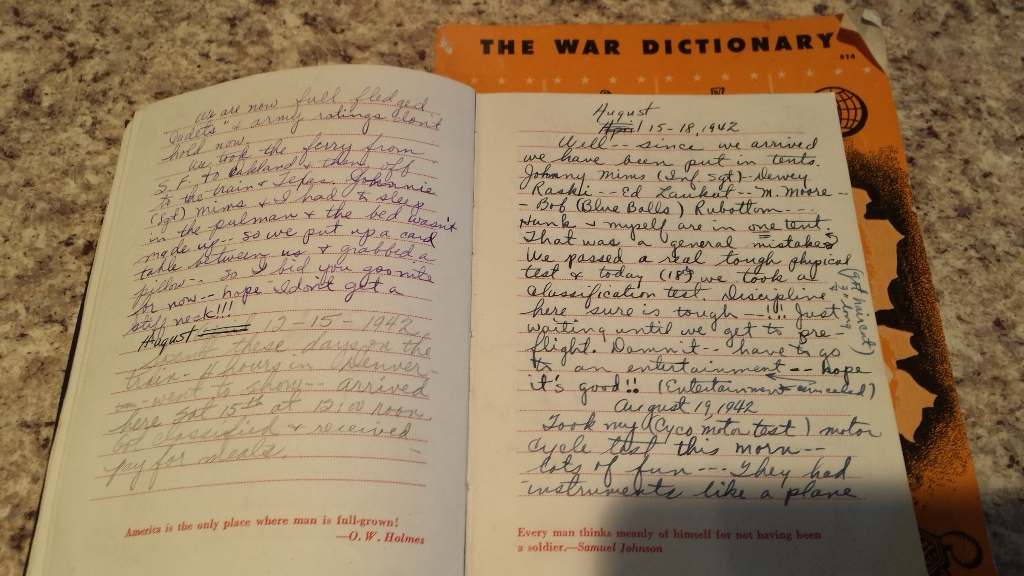 THE WAR DICTIONARY
We are now full fledged
"Cadets" & army ratings don't
hold now.
We took the ferry from
S.F. to Oakland & then off
to the train & Texas. Johnnie
(Sgt) Mims & I had to sleep
in the pulman & the bed wasn't
made up -- so we put up a card
table between us & grabbed a
pillow -- so I bid you goonite
for now -- hope I don't get a
stiff neck!!!
August 12-15-1942
Spent these days on the
train - 4 hours in Denver -
went to show -- arrived
here Sat 15th at 12:00 noon.
Got classified & received
pay for meals.
America is the only place where man is full-grown!
—O. W. Holmes
August
April 15-18, 1942
Well -- since we arrived
we have been put in tents.
Johnny Mims (Inf Sgt) - Dewey
Raskii -- Ed Laukat -- M. Moore --
- Bob (Blue Balls) Rubottom ---
Hunk & myself are in one tent.
That was a general mistake
We passed a real tough physical
test & today (18th) we took a
classification test. Discipline
here sure is tough --!!! Just
waiting until we get to pre
flight. Damnit -- have to go
to an entertainment -- hope
it's good!! (Entertainment canceled)
August 19, 1942
Took my (Cyco motor test) motor
cycle test this morn --
lots of fun --- They had
instruments like a plane
Every man thinks meanly of himself for not having been
a soldier.—Samuel Johnson